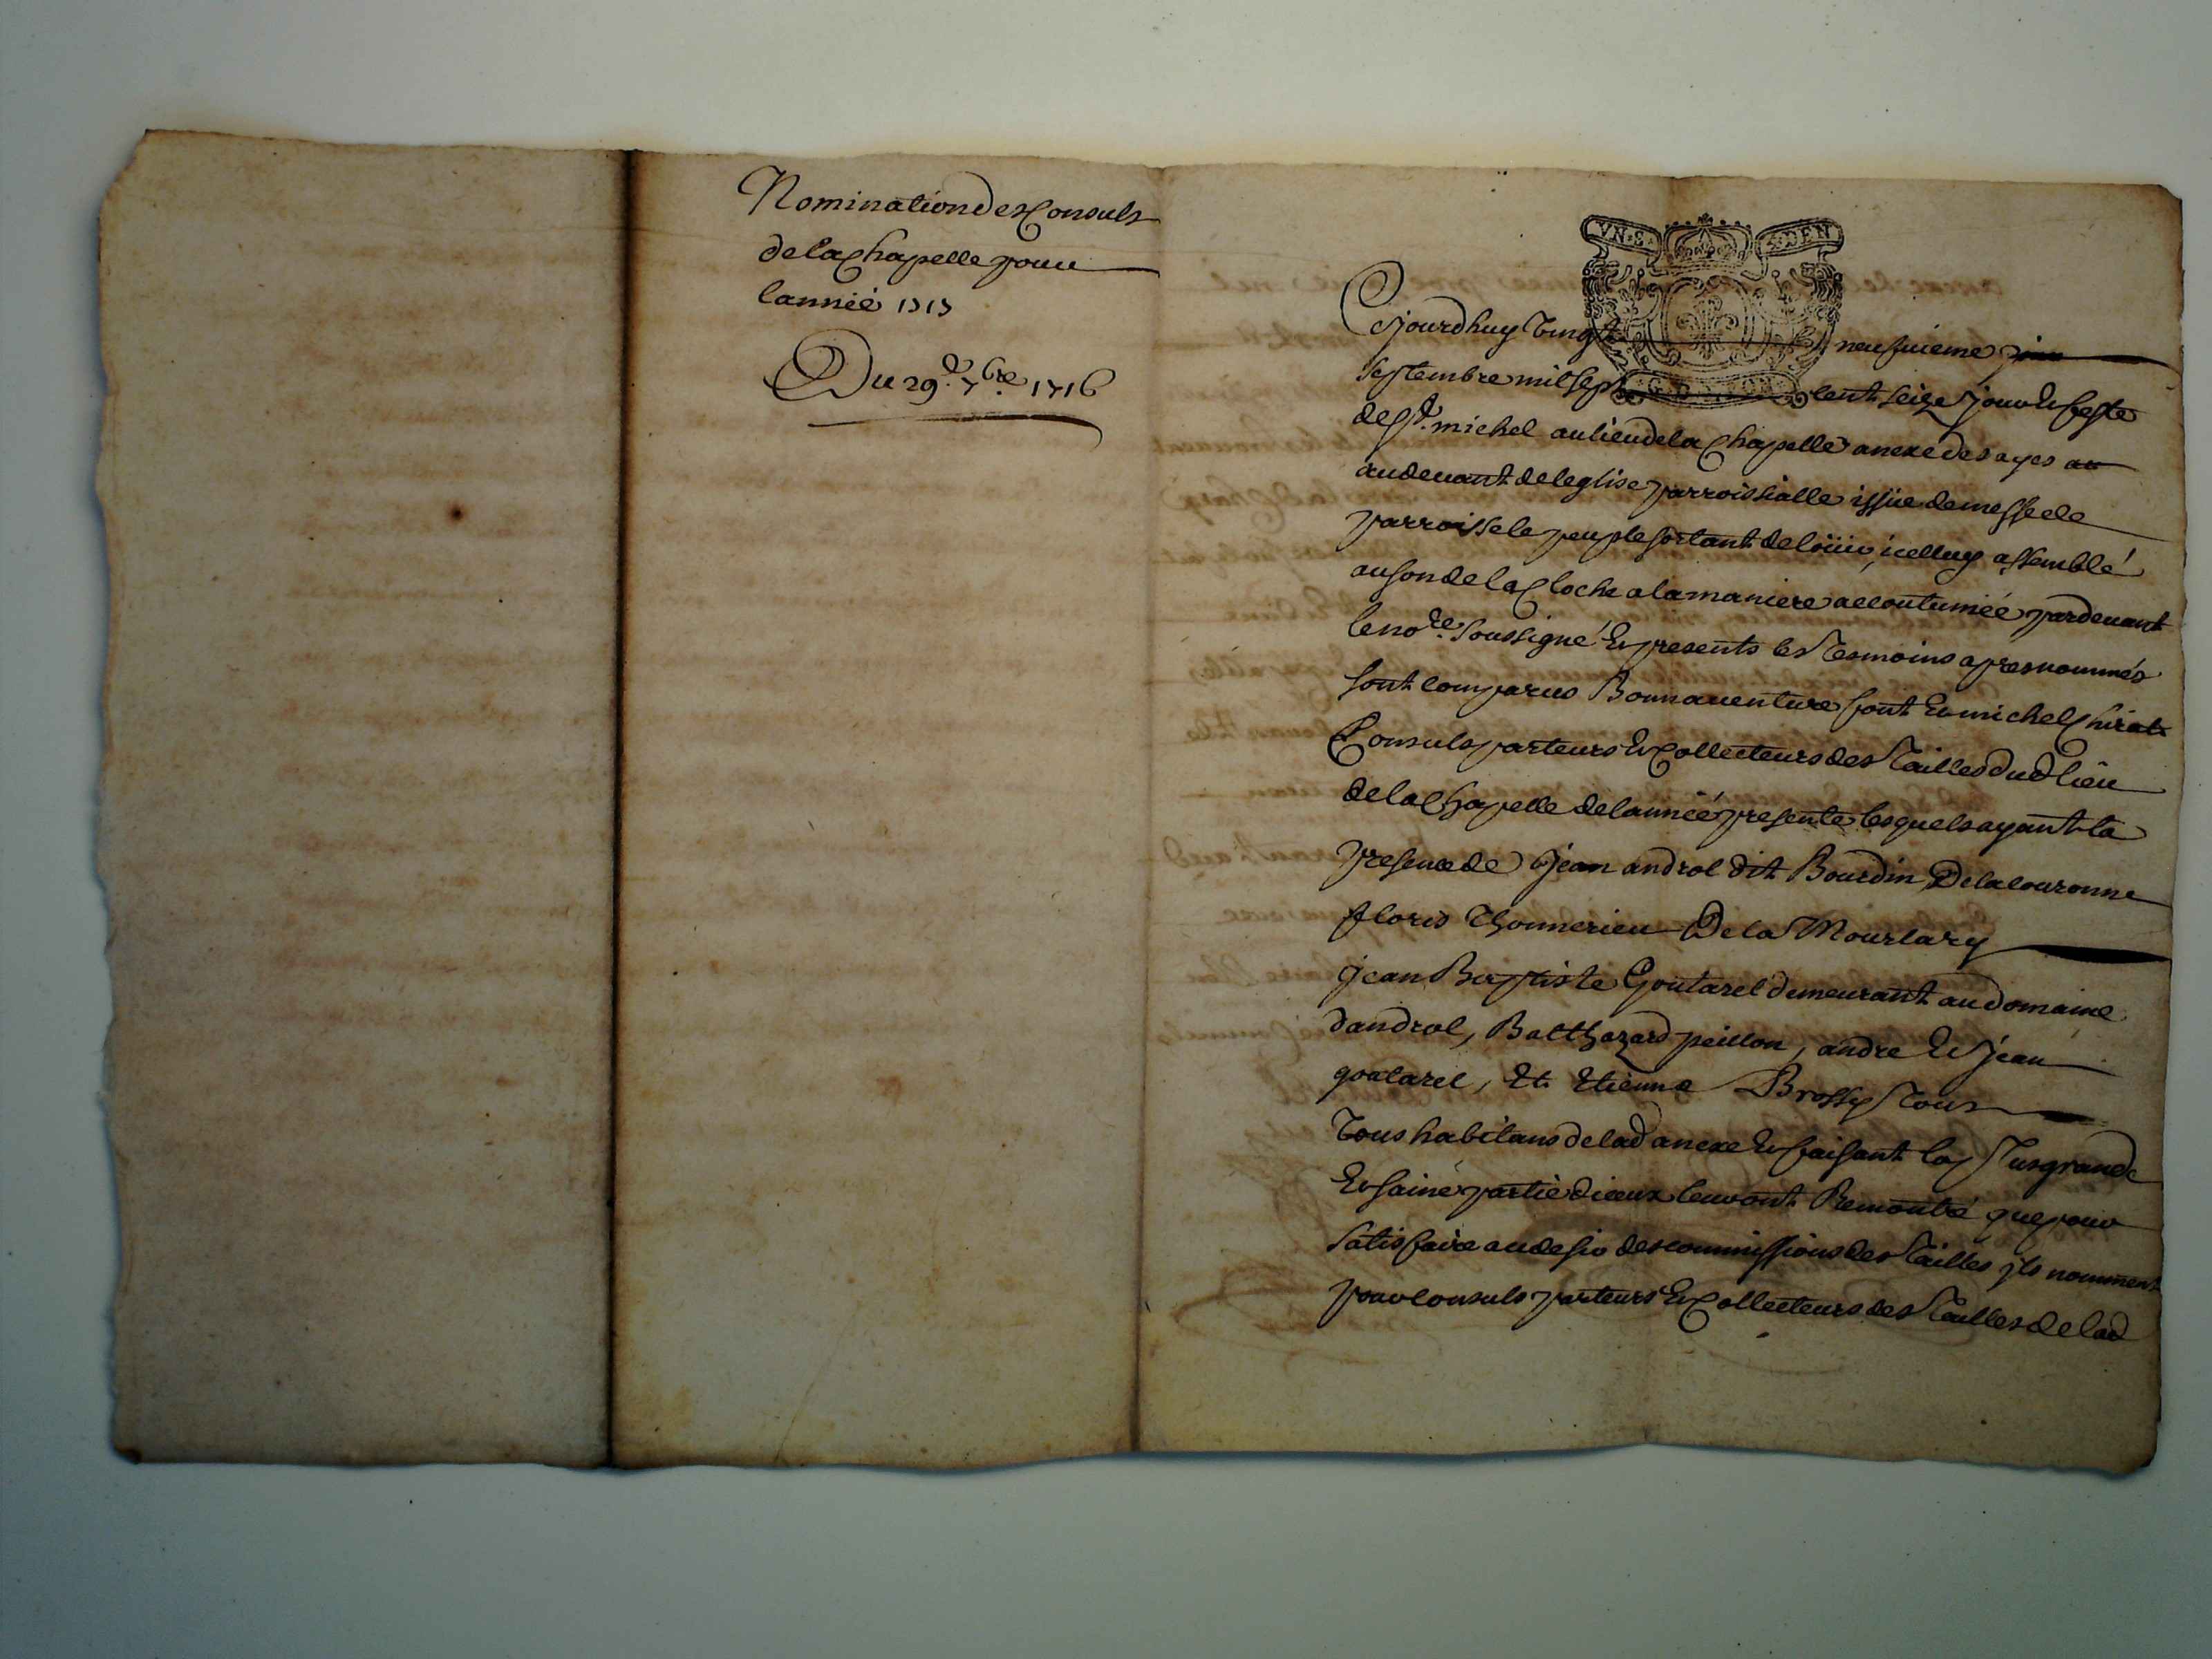 Nomination des Consuls
de la Chapelle pour
lanneé 1717
Du 29.e 7.bre 1716
VN.S. 4.DEN
G. D. LION
Cejourdhuy vingt neufvieme jour
septembre mil sept cent seize jour & feste
de St. michel au lieu de la Chapelle anexe des ayes au
audevant de leglise parroissialle issüe de messe de
parroisse le peuple sortant de loüir, icelluy assemblé
au son de la Cloche a la maniere accoutumeé pardevant
le no.re soussigné & presents les tesmoins apres nommés
sont comparus Bonnaventure font & michel Chirat
Consuls parteurs & Collecteurs des tailles dud lieu
de la Chapelle de lanneé presente lesquels ayant la
presence de jean androl dit Bourdin De la couronne
floris Thonnerieu De la Mourlary
jean Baptiste Goutarel demeurant au domaine
dandrol, Balthazard peillon, andre & jean
goutarel, Et Etienne Brossy tous
tous habitans de lad anexe & faisant la plus grande
& saine partie diceux leur ont Remontré que pour
satisfaire au desir des commissions des tailles ils nomment
pour consuls parteurs & Collecteurs des tailles de lad